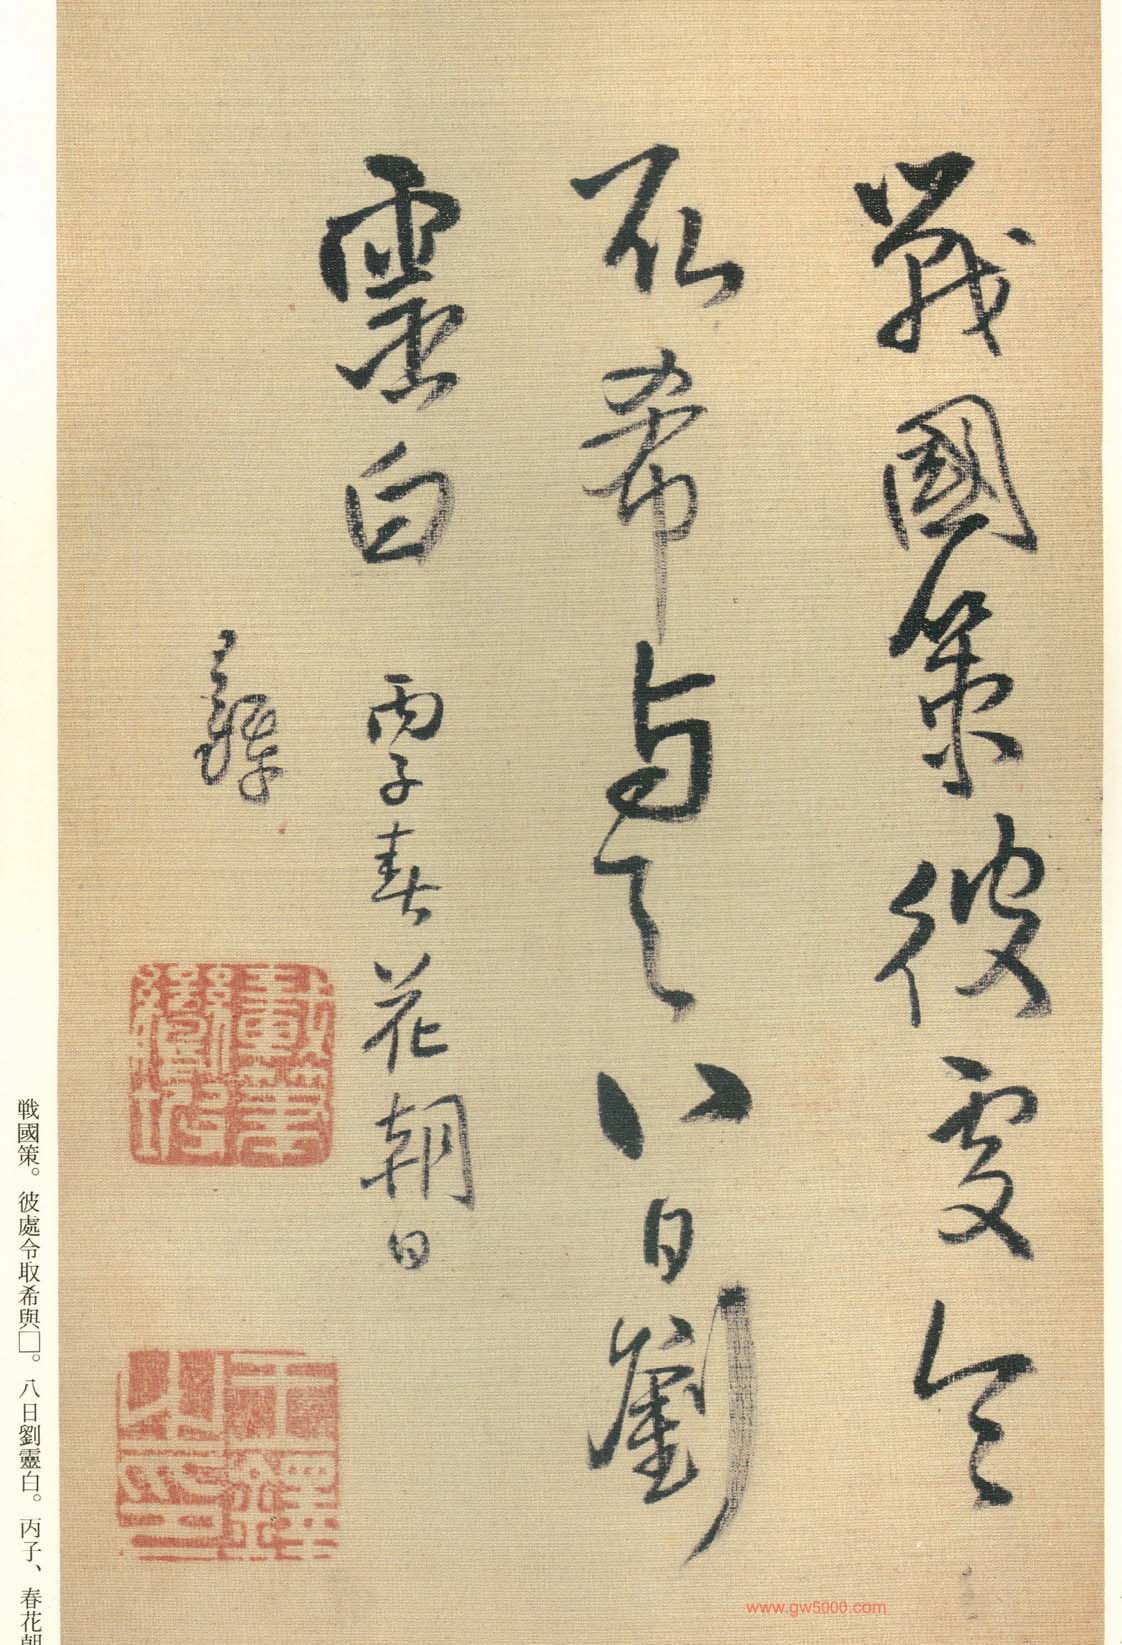 戰國策彼處令
取希與
八日劉
靈白
丙子春花朝日
鐸
王鐸之印
戦國策。彼處令取希與□。八日劉靈白。丙子、春花朝
www.gw5000.com